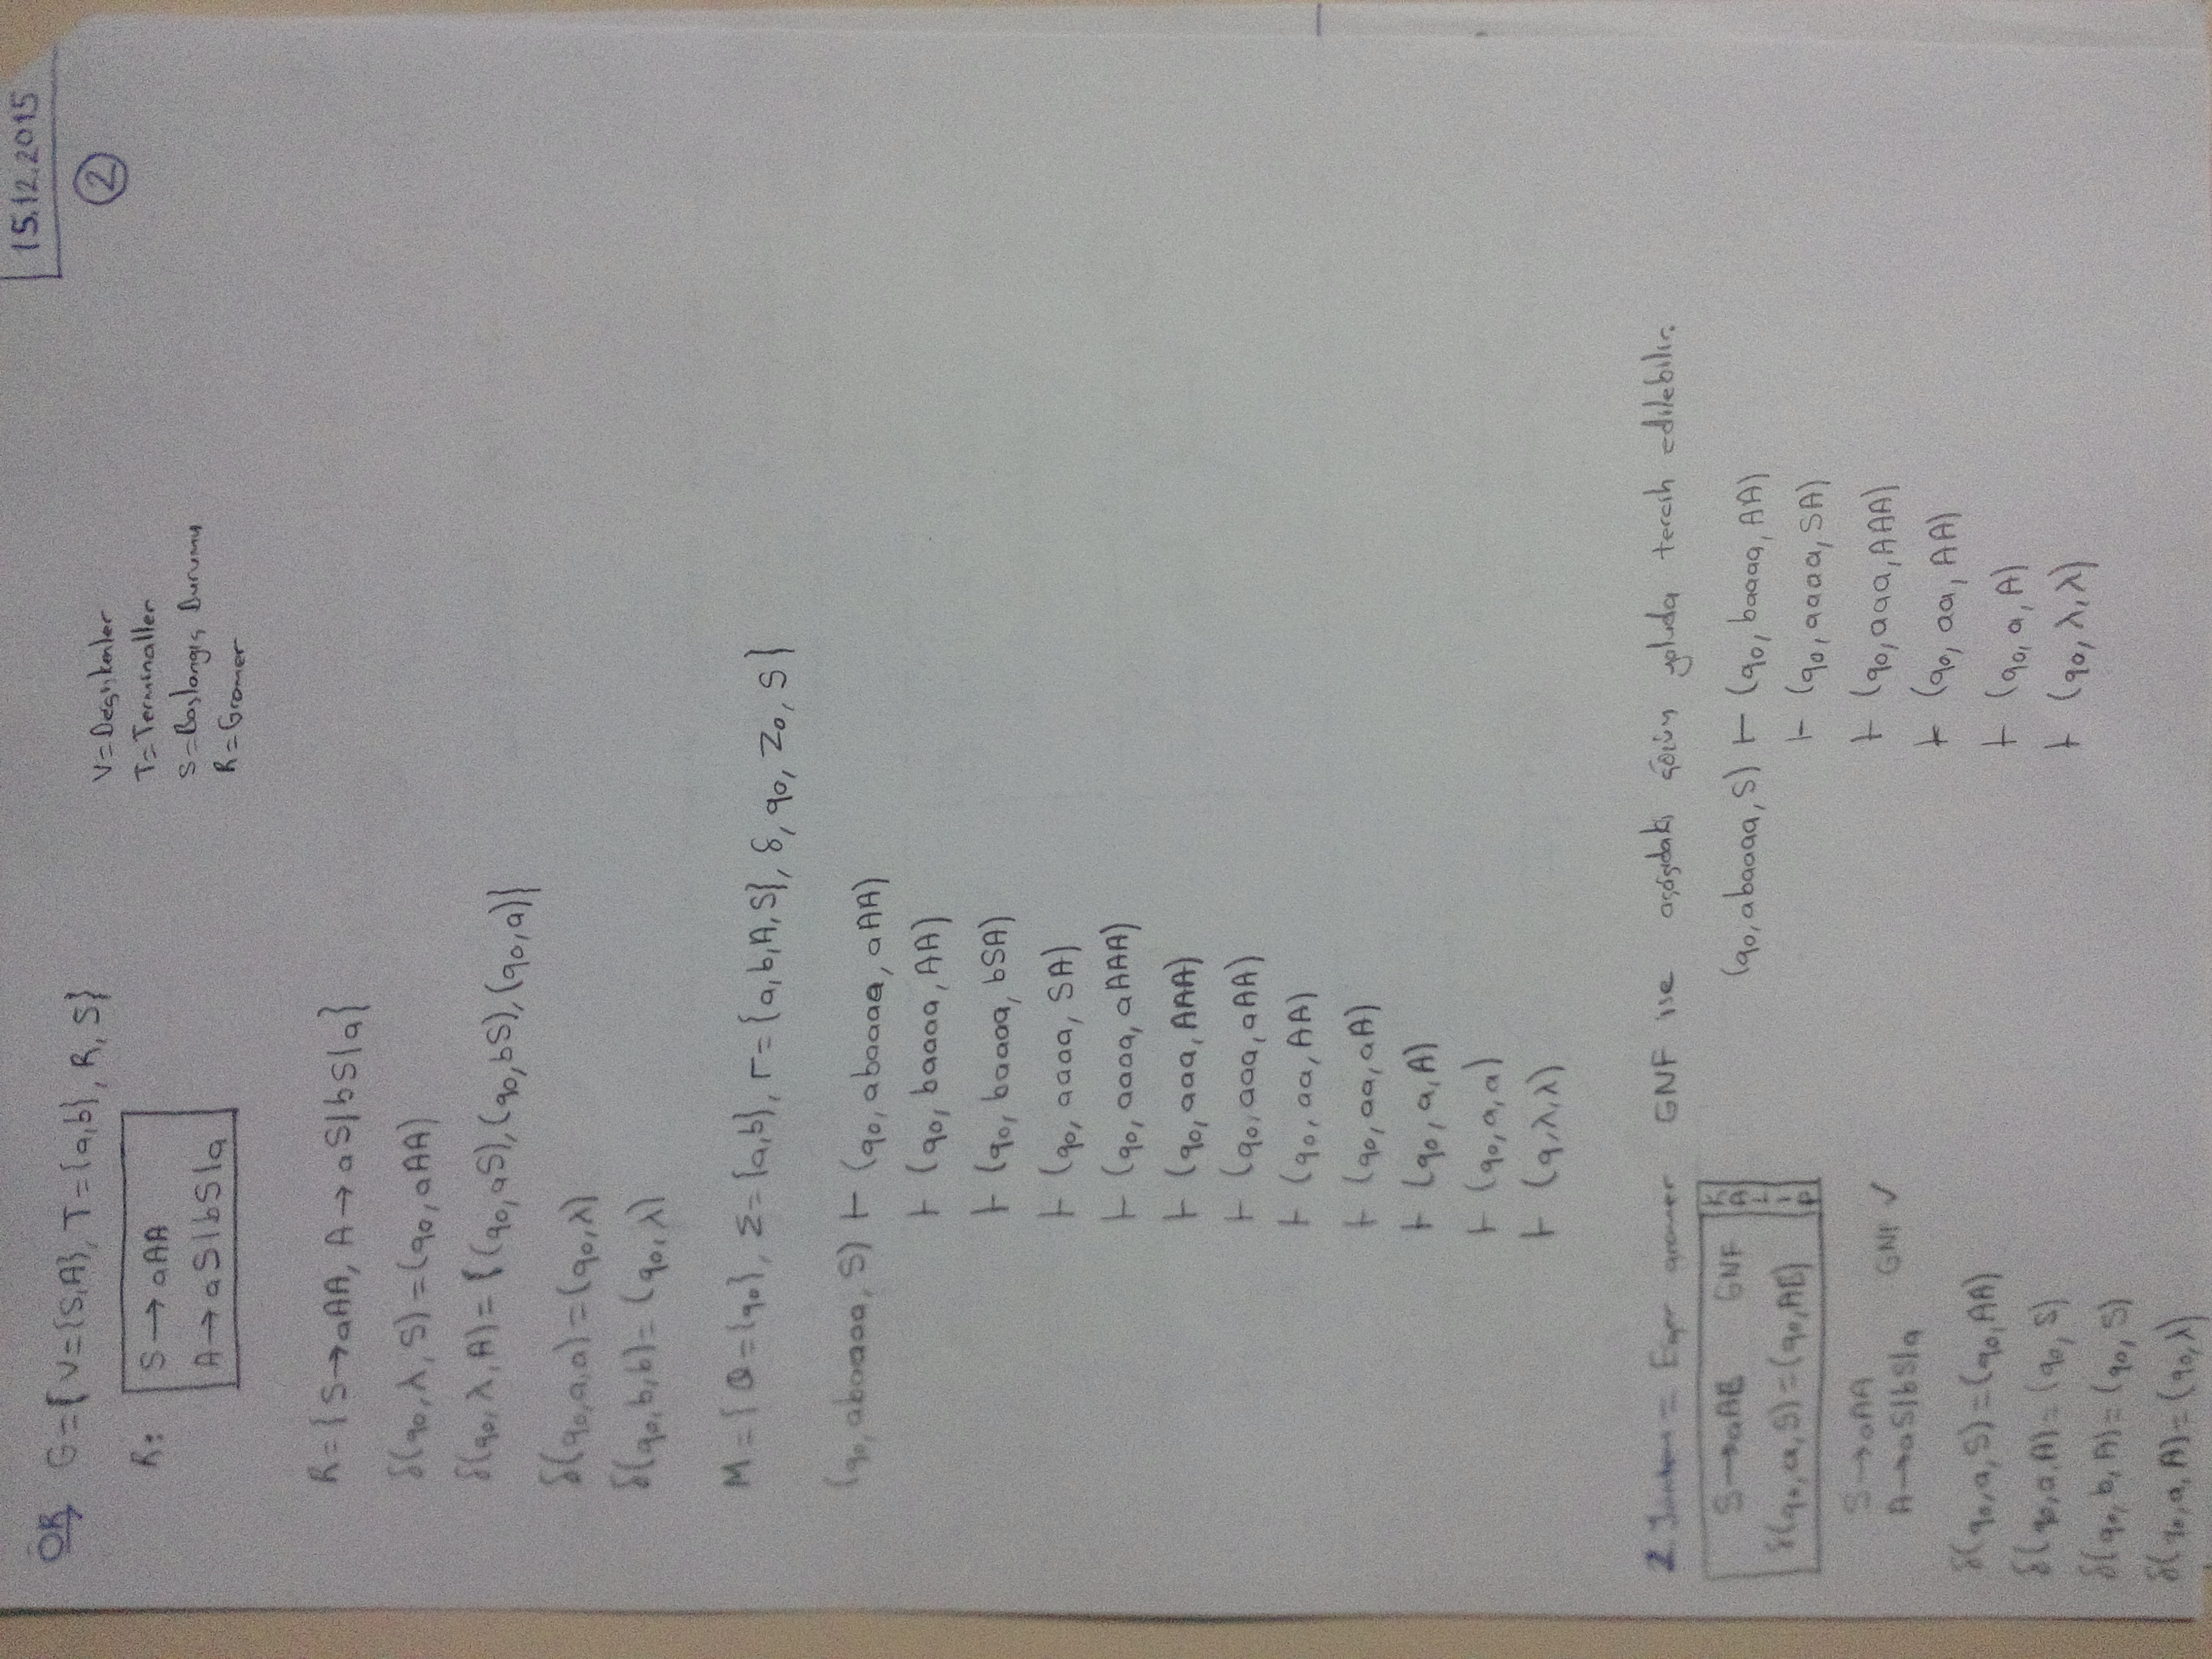 15.12.2015
②
ÖR G={V={S,A}, T={a,b}, R, S}
R: S→aAA
A→aS|bS|a
V=Değişkenler
T=Terminaller
S=Başlangıç Durumu
R=Gramer
R={S→aAA, A→aS|bS|a}
δ(q₀,λ,S)=(q₀,aAA)
δ(q₀,λ,A)={(q₀,aS),(q₀,bS),(q₀,a)}
δ(q₀,a,a)=(q₀,λ)
δ(q₀,b,b)=(q₀,λ)
M={Q={q₀}, Σ={a,b}, Γ={a,b,A,S}, δ, q₀, Z₀, S}
(q₀,abaaaa,S) ⊢ (q₀,abaaaa,aAA)
⊢ (q₀,baaaa,AA)
⊢ (q₀,baaaa,bSA)
⊢ (q₀,aaaa,SA)
⊢ (q₀,aaaa,aAAA)
⊢ (q₀,aaa,AAA)
⊢ (q₀,aaa,aAA)
⊢ (q₀,aa,AA)
⊢ (q₀,aa,aA)
⊢ (q₀,a,A)
⊢ (q₀,a,a)
⊢ (q,λ,λ)
2. = Eğer gramer GNF ise aşağıdaki çözüm yoluda tercih edilebilir.
S→aAB GNF
δ(q₀,a,S)=(q₀,AB)
KALIP
S→aAA
A→aS|bS|a GNF ✓
δ(q₀,a,S)=(q₀,AA)
δ(q₀,a,A)=(q₀,S)
δ(q₀,b,A)=(q₀,S)
δ(q₀,a,A)=(q₀,λ)
(q₀,abaaaa,S) ⊢ (q₀,baaaa,AA)
⊢ (q₀,aaaa,SA)
⊢ (q₀,aaa,AAA)
⊢ (q₀,aa,AA)
⊢ (q₀,a,A)
⊢ (q₀,λ,λ)